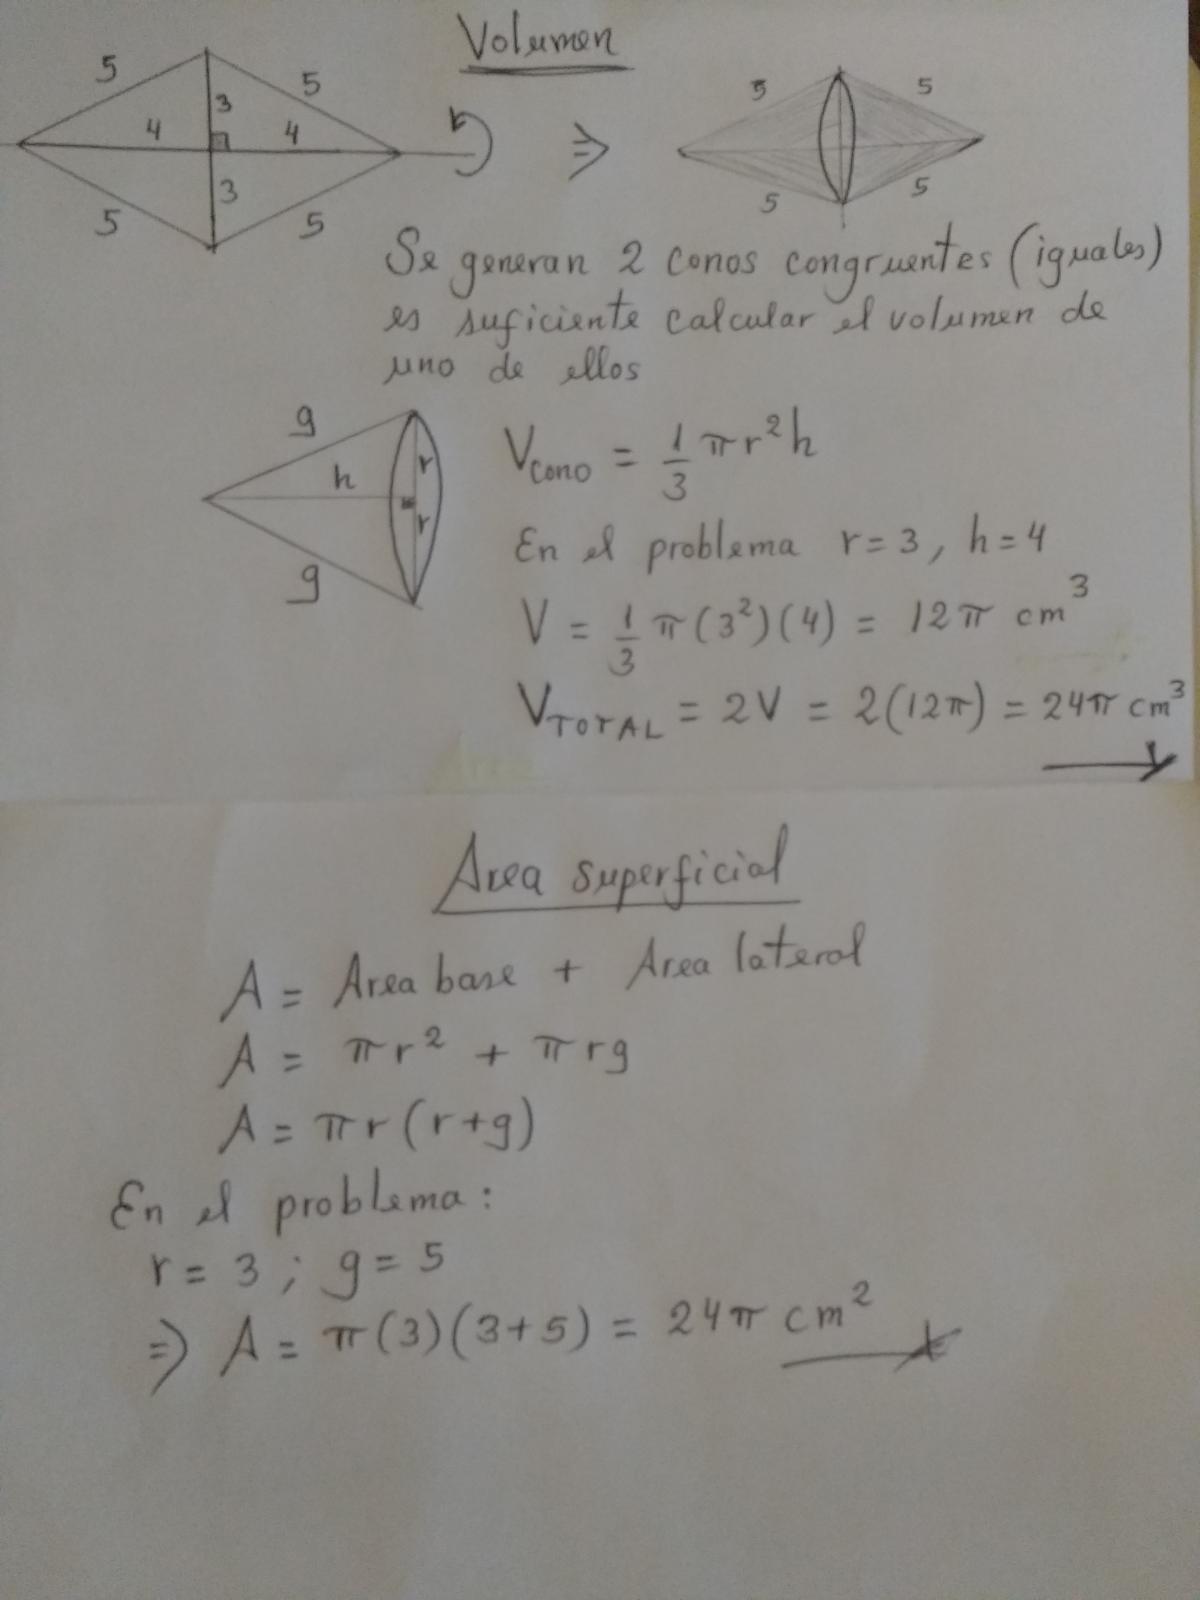 Volumen
5 5 3 4 4 3 5 5
⇒
5 5 5 5
Se generan 2 conos congruentes (iguales)
es suficiente calcular el volumen de
uno de ellos
g h r r g
V_CONO = 1/3 πr²h
En el problema r = 3, h = 4
V = 1/3 π(3²)(4) = 12π cm³
V_TOTAL = 2V = 2(12π) = 24π cm³
Area superficial
A = Area base + Area lateral
A = πr² + πrg
A = πr(r+g)
En el problema:
r = 3 ; g = 5
⇒ A = π(3)(3+5) = 24π cm²